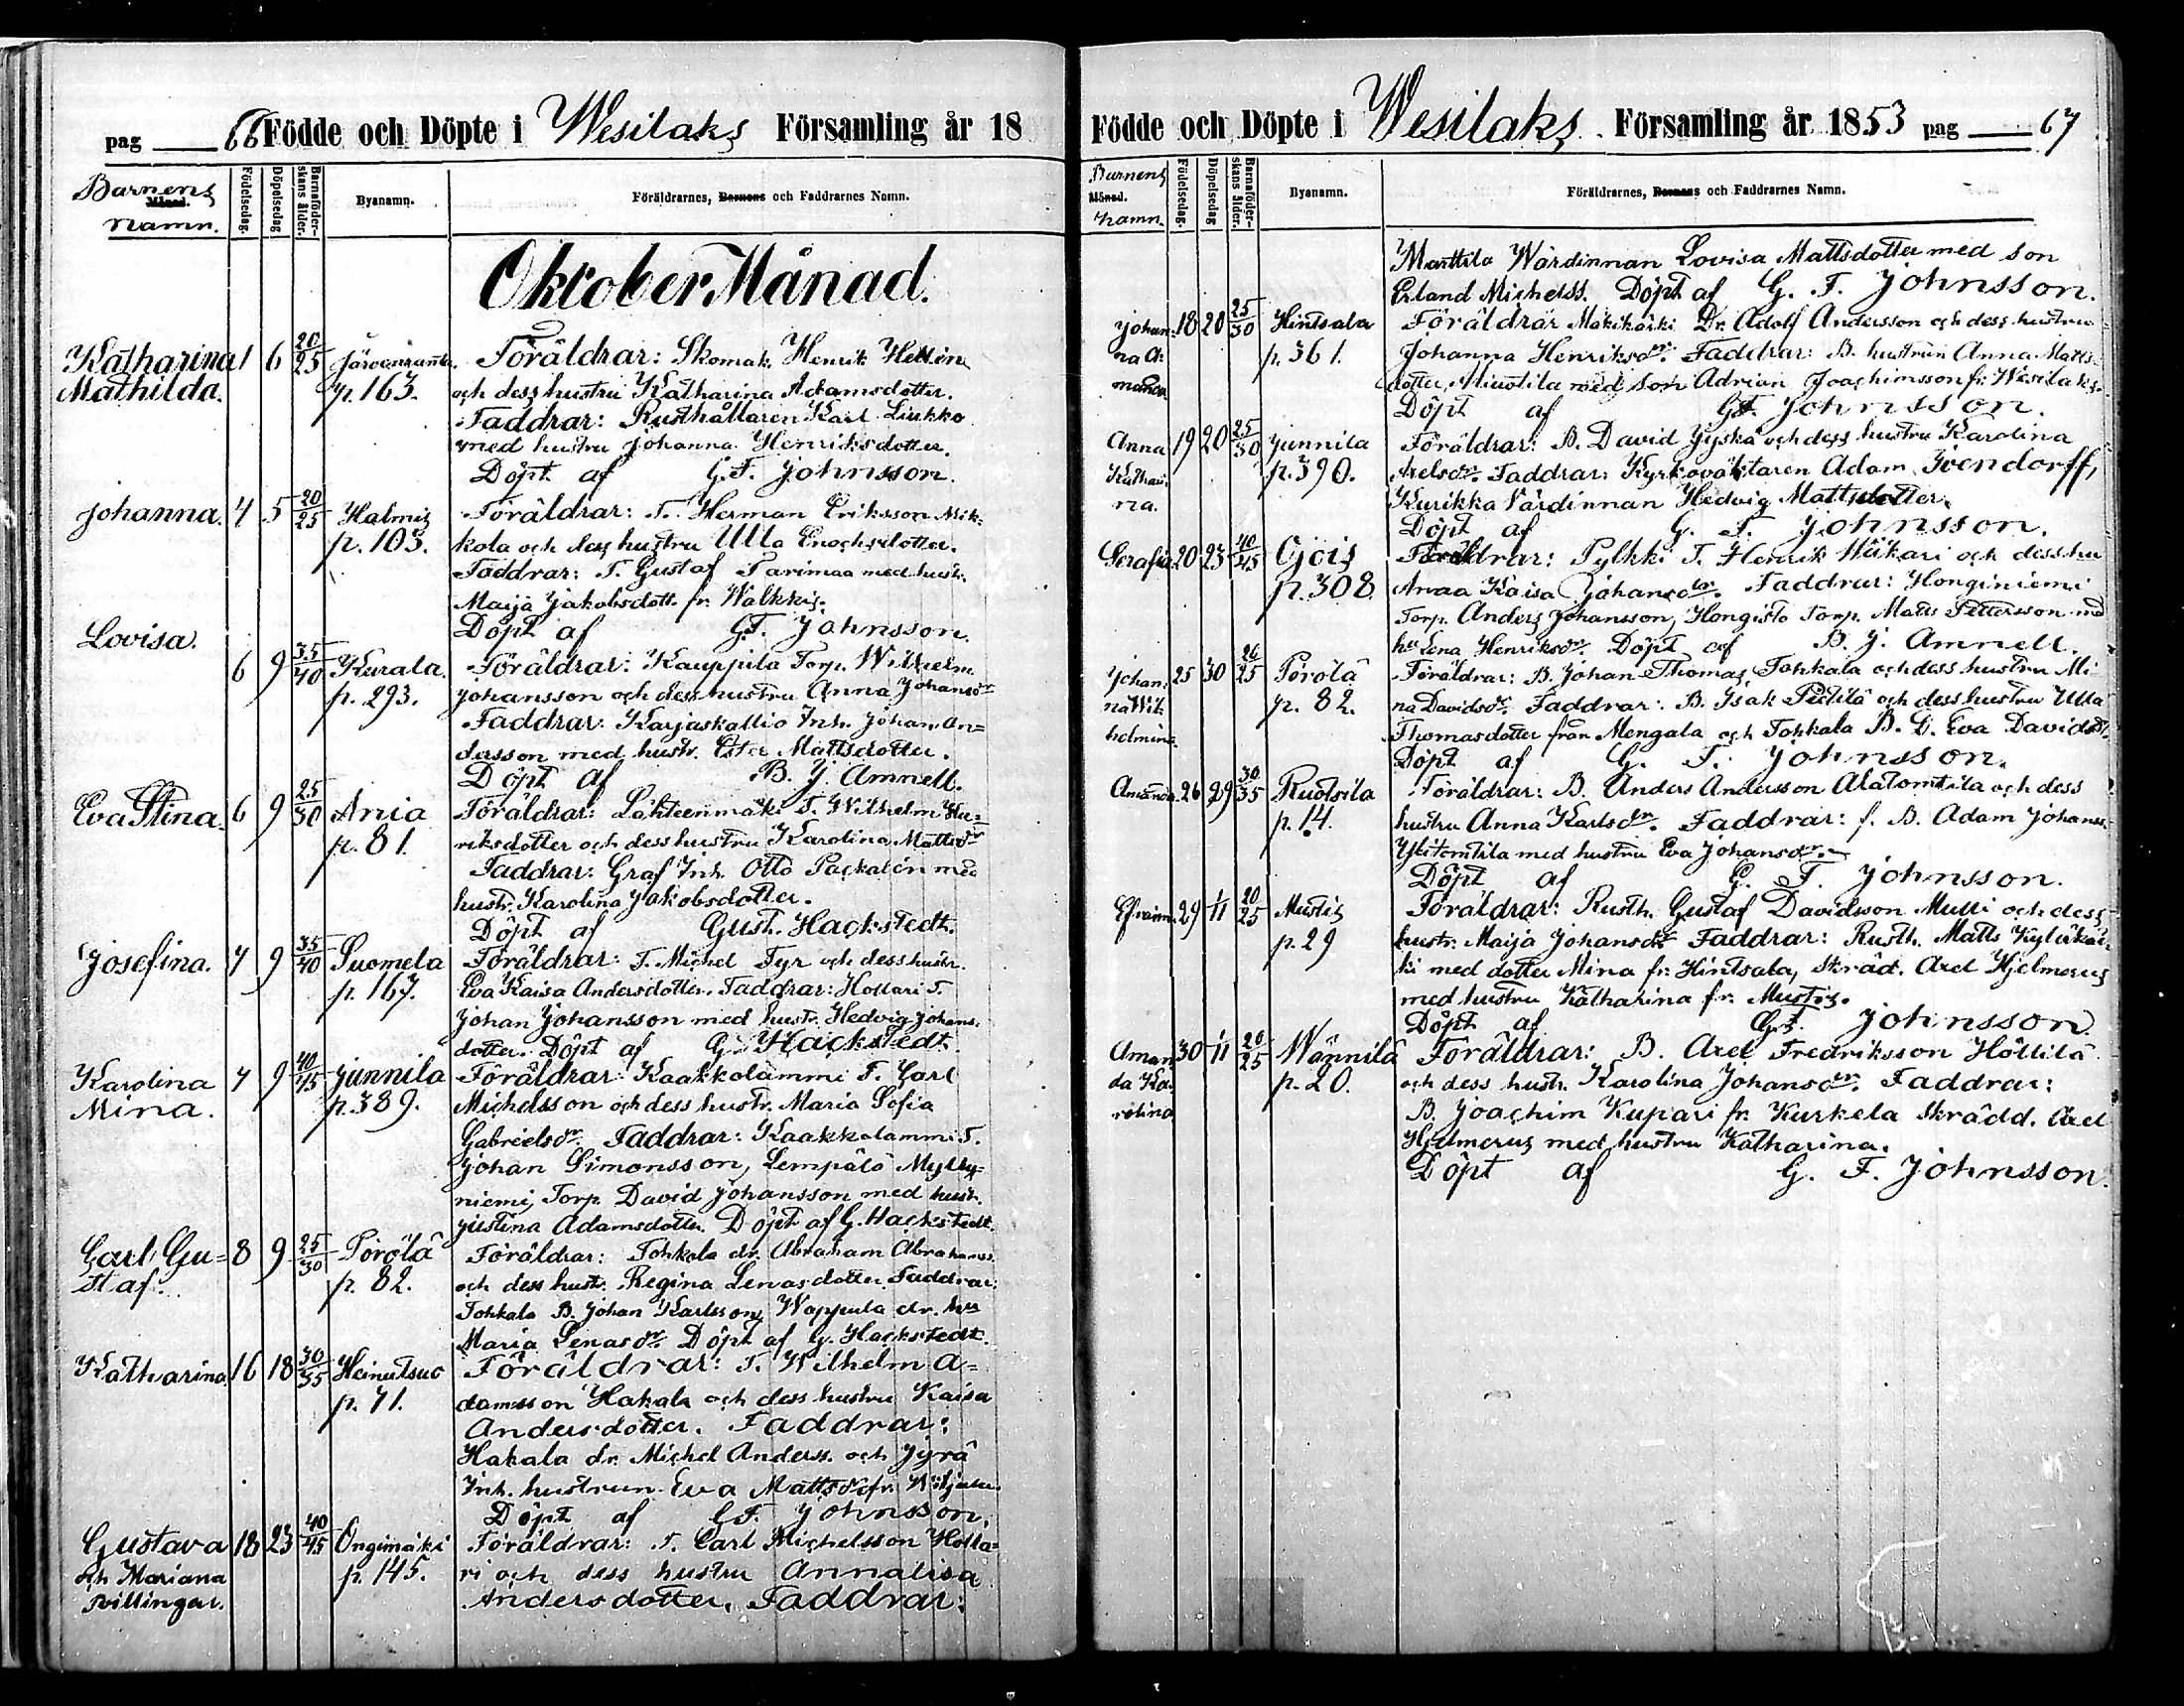 pag 66 Födde och Döpte i Wesilaks Församling år 18
Barnens Månad. Namn.
Födelsedag.
Döpelsedag
Barnaföderskans ålder.
Byanamn.
Föräldrarnes, Barnens och Faddrarnes Namn.
Oktober Månad.
Katharina 1 6 20/25 Järvenranta. Föräldrar: Skomak. Henrik Hellin
Mathilda. p. 163. och dess hustru Katharina Adamsdotter.
Faddrar: Rusthållaren Karl Liukko
med hustru Johanna Henriksdotter.
Döpt af G.F. Johnsson.
Johanna. 4 5 20/25 Halmis Föräldrar: T. Herman Eriksson Mik-
p. 103. kola och dess hustru Ulla Enochsdotter.
Faddrar: T. Gustaf Tarimaa med hustr.
Maija Jakobsdott. fr. Walkkis.
Döpt af G.F. Johnsson.
Lovisa.
6 9 35/40 Kurala. Föräldrar: Kauppila Torp. Wilhelm
p. 293. Johansson och dess hustru Anna Johansdr
Faddrar: Karjaskallio Inh. Johan An=
dersson med hustr. Ester Mattsdotter.
Döpt af B. J. Amnell.
Eva Stina. 6 9 25/30 Ania Föräldrar: Lähteenmäki T. Wilhelm Hen-
p. 81. riksdotter och dess hustru Karolina Mattsdr
Faddrar: Graf Inh. Otto Packalén med
hustr. Karolina Jakobsdotter.
Döpt af Gust. Hackstedt.
Josefina. 7 9 35/40 Suomela Föräldrar: T. Michel Tyr och dess hustr.
p. 167. Eva Kaisa Andersdotter. Faddrar: Hollari T.
Johan Johansson med hustr. Hedvig Johans-
dotter. Döpt af G. Hackstedt.
Karolina 7 9 40/45 Junnila Föräldrar: Kaakkolammi T. Carl
Mina. p. 389. Michelsson och dess hustr. Maria Sofia
Gabrielsdr. Faddrar: Kaakkolammi T.
Johan Simonsson, Lempälö Mylly=
niemi Torp. David Johansson med hustr.
Justina Adamsdotter. Döpt af G. Hackstedt.
Carl Gu= 8 9 25/30 Pörölä Föräldrar: Tohkala dr. Abraham Abrahamss.
staf. p. 82. och dess hustr. Regina Lenasdotter Faddrar:
Tohkala B. Johan Karlsson, Wappula dr. hu
Maria Lenasdr. Döpt af G. Hackstedt.
Katharina. 16 18 30/35 Heinutsuo Föräldrar: T. Wilhelm A=
p. 71. damsson Hakala och dess hustru Kaisa
Andersdotter. Faddrar:
Hakala dr. Michel Anderss. och Jyrä
Inh. hustrun Eva Mattsdr fr.
Döpt af G.F. Johnsson.
Gustava 18 23 40/45 Ongimäki Föräldrar: T. Carl Michelsson Holla=
och Mariana p. 145. ri och dess hustru Annalisa
tvillingar. Andersdotter. Faddrar:
Födde och Döpte i Wesilaks Församling år 1853 pag 67
Barnens Månad. Namn.
Födelsedag.
Döpelsedag
Barnaföderskans ålder.
Byanamn.
Föräldrarnes, Barnens och Faddrarnes Namn.
Marttila Wärdinnan Lovisa Mattsdotter med son
Erland Michelss. Döpt af G. F. Johnsson.
Johan- 18 20 25/30 Hintsala Föräldrar Mäkikärki Dr. Adolf Andersson och dess hustru
na A- p. 361. Johanna Henriksdr. Faddrar: B. hustrun Anna Matts-
manda dotter, med son Adrian Joachimsson fr. Wesilaks.
Döpt af G.F. Johnsson.
Anna 19 20 25/30 Junnila Föräldrar: B. David Jyskä och dess hustru Karolina
Kathari- p. 390. Axelsdr. Faddrar: Kyrkoväktaren Adam Ivendorff,
na. Kurikka Värdinnan Hedvig Mattsdotter.
Döpt af G. F. Johnsson.
Serafia 20 23 40/45 Ojois Föräldrar: Pylkki T. Henrik Wükari och dess hu
p. 308 Anna Kaisa Johansdr. Faddrar: Honginiemi
Torp. Anders Johansson, Hongisto Torp. Matts Pettersson med
hu Lena Henriksdr. Döpt af B. J. Amnell.
Johan- 25 30 20/25 Pörölä Föräldrar: B. Johan Thomas. Tohkala och dess hustru Mi
na Wil- p. 82. na Davidsdr. Faddrar: B. Isak Pietilä och dess hustru Ulla
helmina. Thomasdotter från Mengala och Tohkala B. D. Eva Davidsdr.
Döpt af G. F. Johnsson.
Amanda 26 29 30/35 Ruotsila Föräldrar: B. Anders Andersson Alatomtila och dess
p. 14. hustru Anna Karlsdr. Faddrar: f. B. Adam Johanss.
Ylitomtila med hustru Eva Johansdr.
Döpt af G. F. Johnsson.
Efraim. 29 1/11 20/25 Mustis Föräldrar: Rusth. Gustaf Davidsson Mulli och dess
p. 29 hustr. Maija Johansdr. Faddrar: Rusth. Matts
ki med dotter Mina fr. Hintsala, Skräd. Axel Hjelmerus
med hustru Katharina fr. Mustis.
Döpt af G.F. Johnsson.
Aman- 30 1/11 20/25 Wännilä Föräldrar: B. Axel Fredriksson Höllilä
da Ka- p. 20. och dess hustr. Karolina Johansdr. Faddrar:
rolina B. Joachim Kupari fr. Kurkela Skrädd. Axel
Hjelmerus med hustru Katharina.
Döpt af G. F. Johnsson.